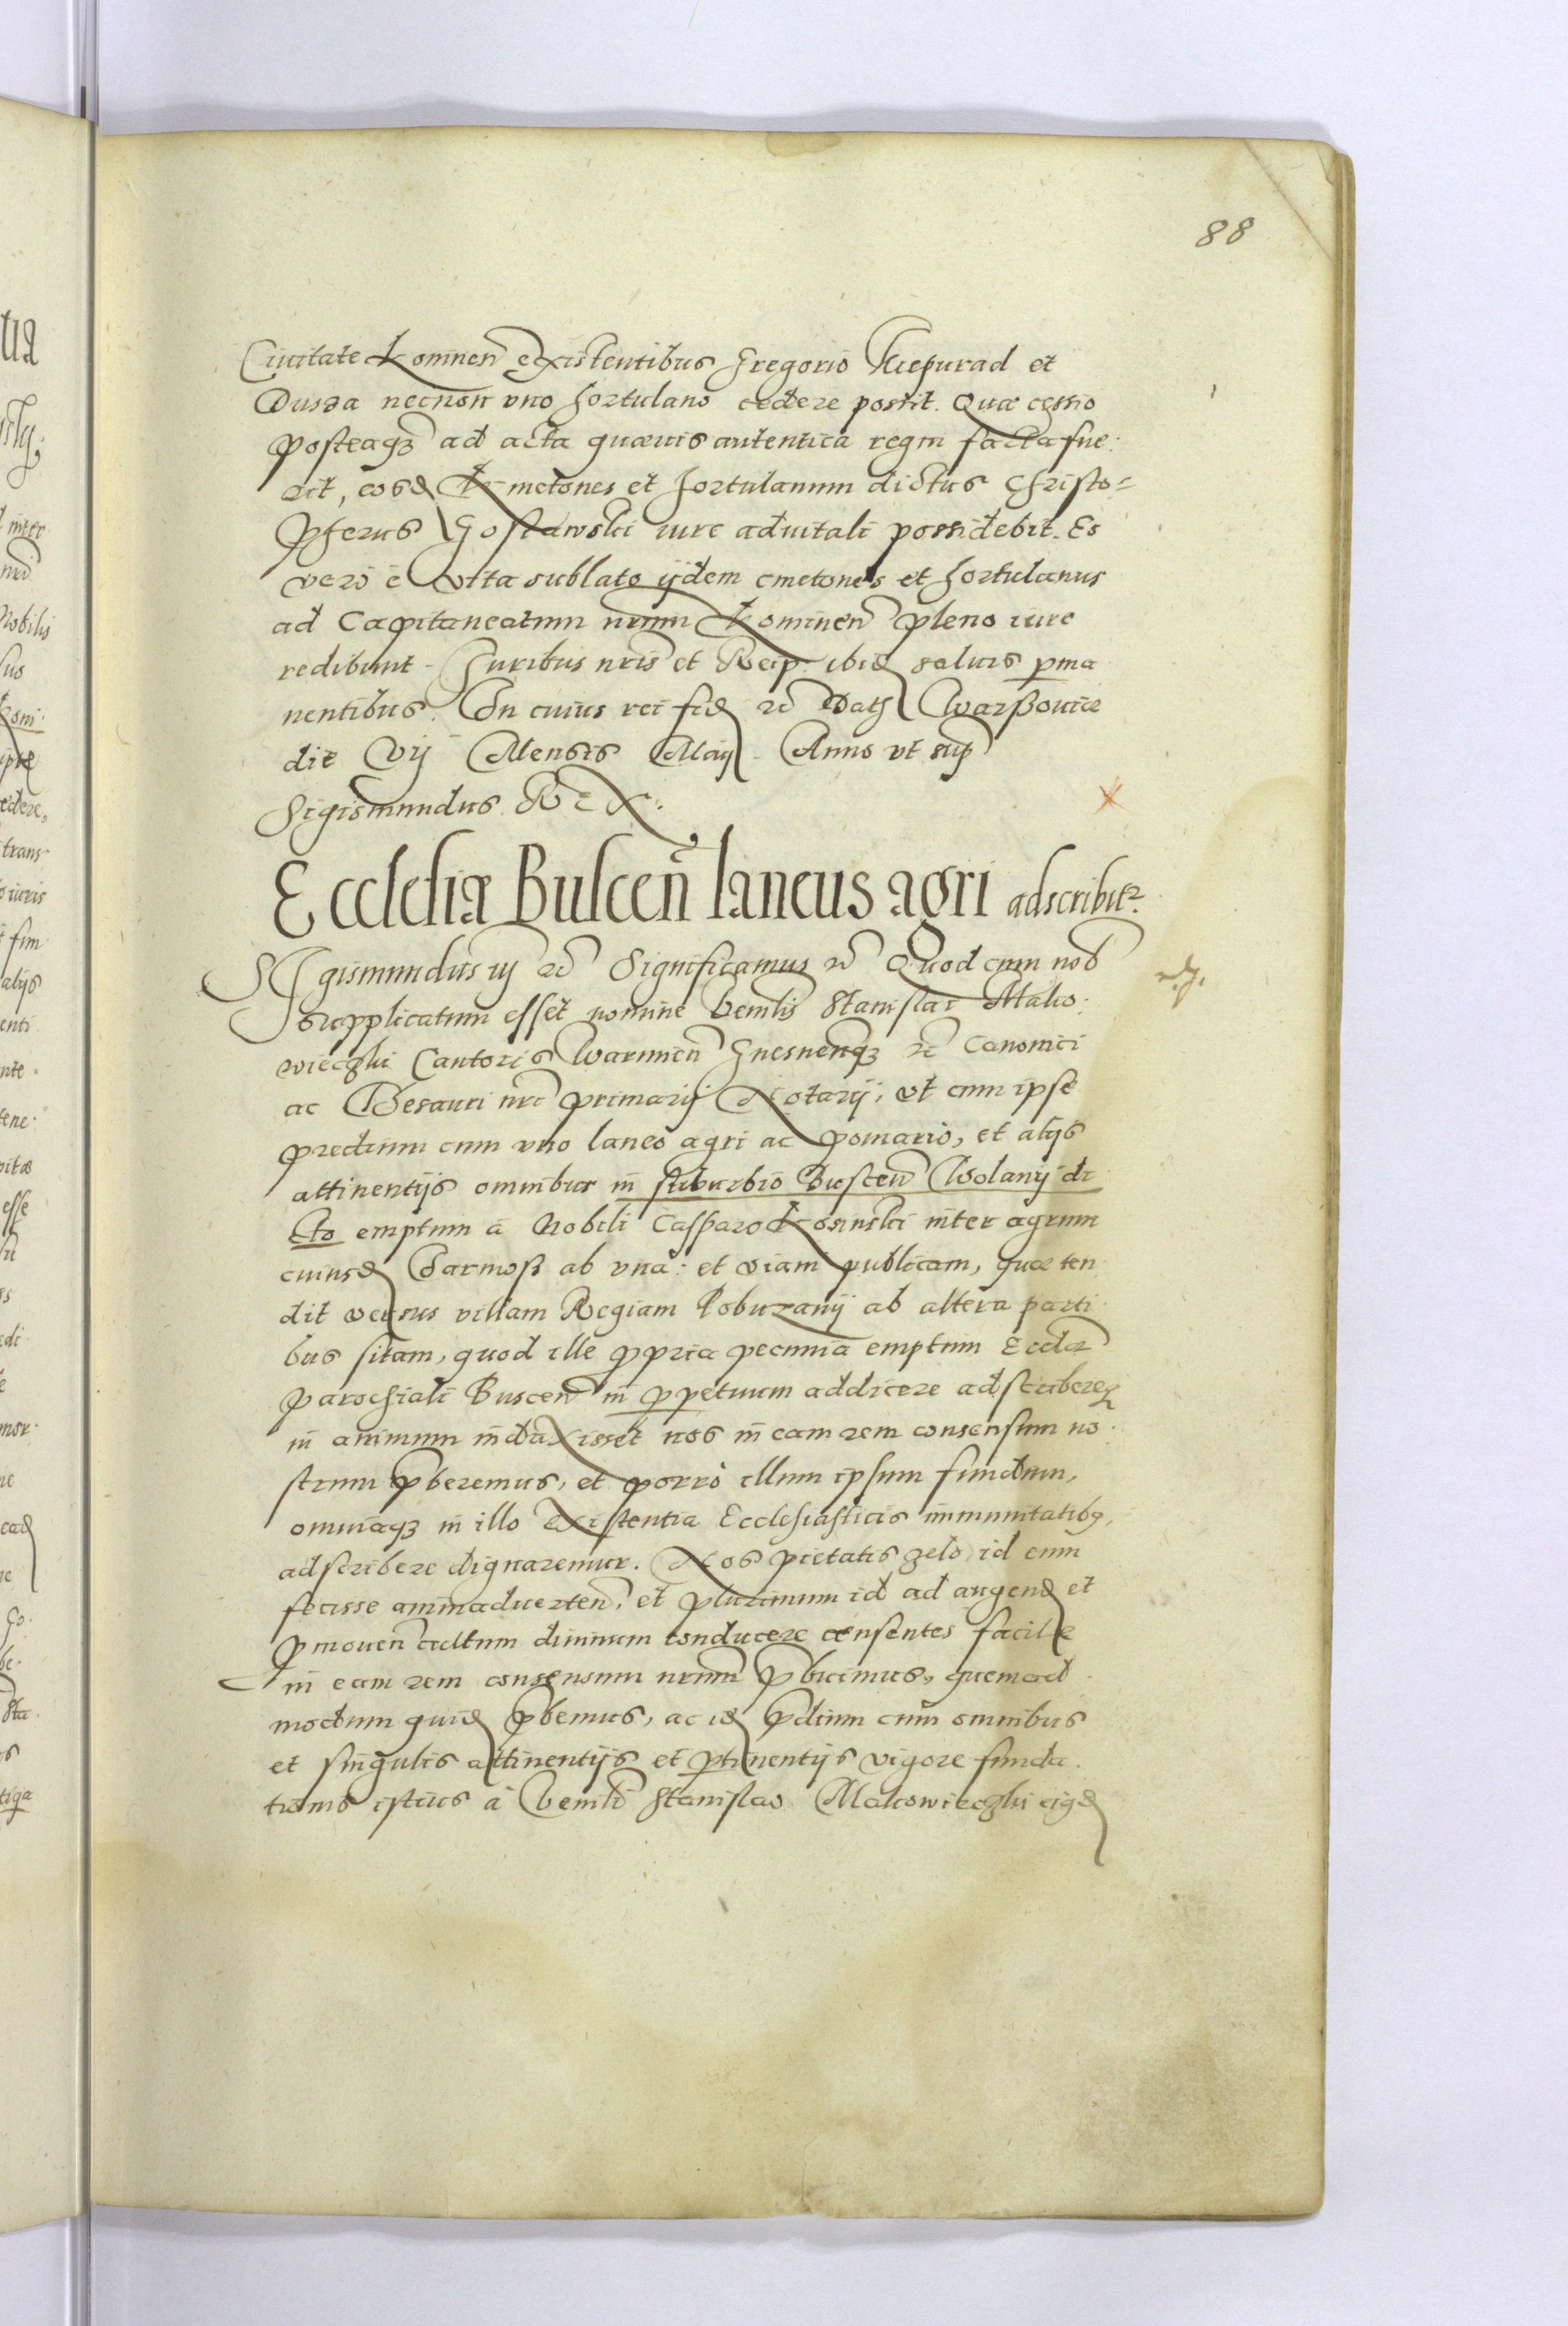 88
Ciuitate Koninen̄ existentibus Gregorio Kiepurad et
Dusza necnon vno hortulano cedere possit. Quæ cessio
posteaqʒ ad acta quæuis autentica regni facta fue:
rit, eosd̄ Kmetones et hortulanum dictus Christo=
pherus Gostawski iure aduitali possidebit. Eo
vero è vita sublato ijdem cmetones et hortulanus
ad Capitaneatum nrm̄ Koninen̄ pleno iure
redibunt. Juribus nrīs et Reip. ibid̄ saluis ꝑma
nentibus. In cuius rei fid̄ ꝛc̄ Dat̄ Warßouiæ
die Vij Mensis Maij. Anno vt sup̄
Sigismundus Rex.
Ecclesiæ Buscen̄ laneus agri adscribitꝛ
Sigismundus iij ꝛc̄ Significamus ꝛc̄ Quod cum nob̄
supplicatum esset nomine Venīlis Stanislai Mako:
wieczki Cantoris Warmien̄ Gnesnenqʒ ꝛc̄ Canonici
ac Thesauri nrī primarij Notarij, vt cum ipse
predium cum vno laneo agri ac pomario, et alijs
attinentijs omnibus in suburbio Buscen̄ Wolanij di
cto emptum à Nobili Casparo Kosinski inter agrum
cuiusd̄ Jarmoß ab vna: et viam publicam, quæ ten
dit versus villam Regiam Kobuzanij ab altera parti
bus sitam, quod ille ꝓpria pecunia emptum Eccl̄æ
Parochiali Buscen̄ in ꝑpetuum addicere adscribereqʒ
in animum induxisset nos in eam rem consensum no:
strum p̄beremus, et porrò illum ipsum fundum,
omniaqʒ in illo existentia Ecclesiasticis immunitatibꝫ,
adscribere dignaremur. Nos pietatis zelo id eum
fecisse animaduerten̄, et plurimum id ad augend̄ et
ꝓmouen̄ cultum diuinum conducere censentes facile
in eam rem consensum nrm̄ p̄buimus, quemad
modum quid̄ p̄bemus, ac id̄ p̄dium cum omnibus
et singulis attinentijs et ꝑtinentijs vigore funda:
tionis istius à Venīli Stanislao Makowieczki eid̄